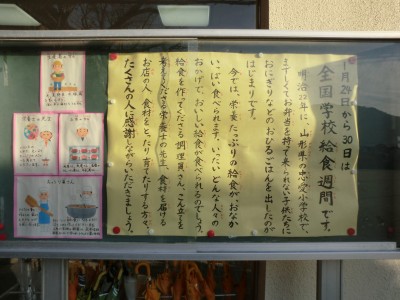 1月24日から30日は
全国学校給食週間です。
明治22年に、山形県の忠愛小学校で、
まずしくてお弁当を持って来られない子供たちに
おにぎりなどのおひるごはんを出したのが
はじまりです。
今では、栄養たっぷりの給食が、おなか
いっぱい食べられます。いったいどんな人々の
おかげで、おいしい給食が食べられるのでしょう。
給食を作ってくださる調理員さん、こん立を
考えてくださる栄養士の先生、食材を届ける
お店の人、食材をとったり育てたりする方々、
たくさんの人に感謝しながらいただきましょう。